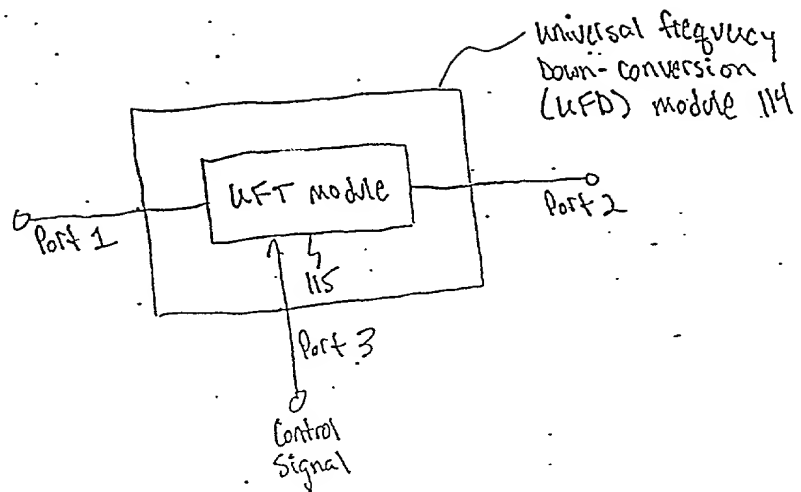 Universal frequency
Down-conversion
(UFD) module 114
UFT module
Port 1
Port 2
115
Port 3
Control
Signal